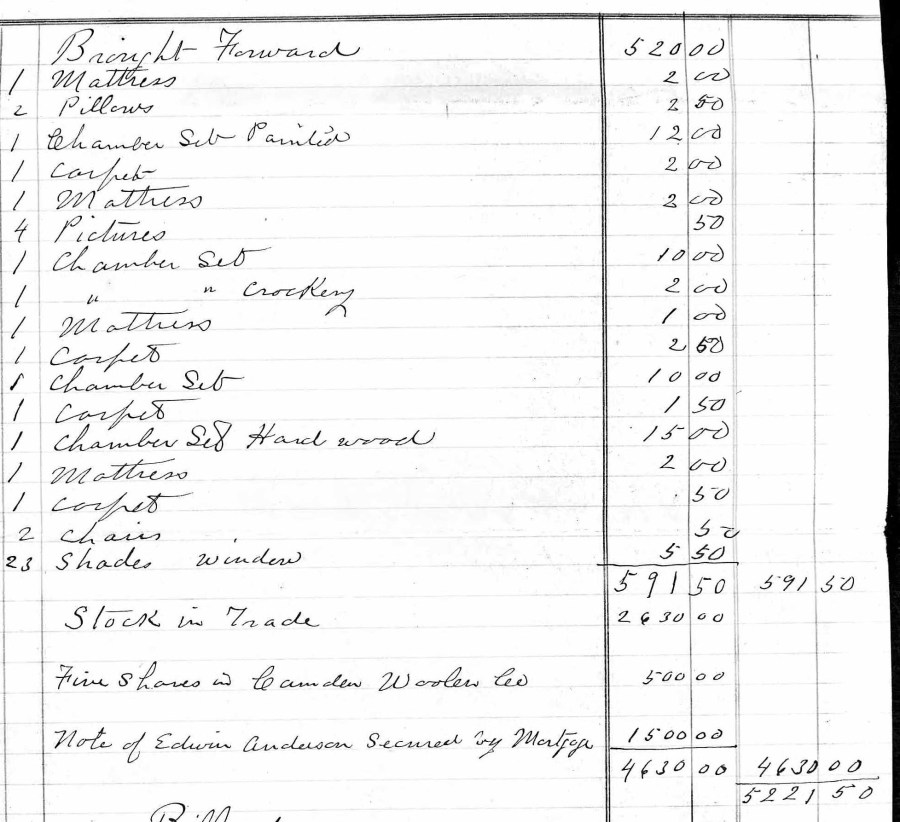 Brought Forward 520 00
1 Mattress 2 00
2 Pillows 2 50
1 Chamber Set Painted 12 00
1 Carpet 2 00
1 Mattress 2 00
4 Pictures 50
1 Chamber Set 10 00
1 " " Crockery 2 00
1 Mattress 1 00
1 Carpet 2 50
1 Chamber Set 10 00
1 Carpet 1 50
1 Chamber Set Hard wood 15 00
1 Mattress 2 00
1 Carpet 50
2 Chairs 50
23 Shades window 5 50
591 50 591 50
Stock in Trade 2630 00
Five Shares in Camden Woolen Co 500 00
Note of Edwin Anderson Secured by Mortgage 1500 00
4630 00 4630 00
5221 50